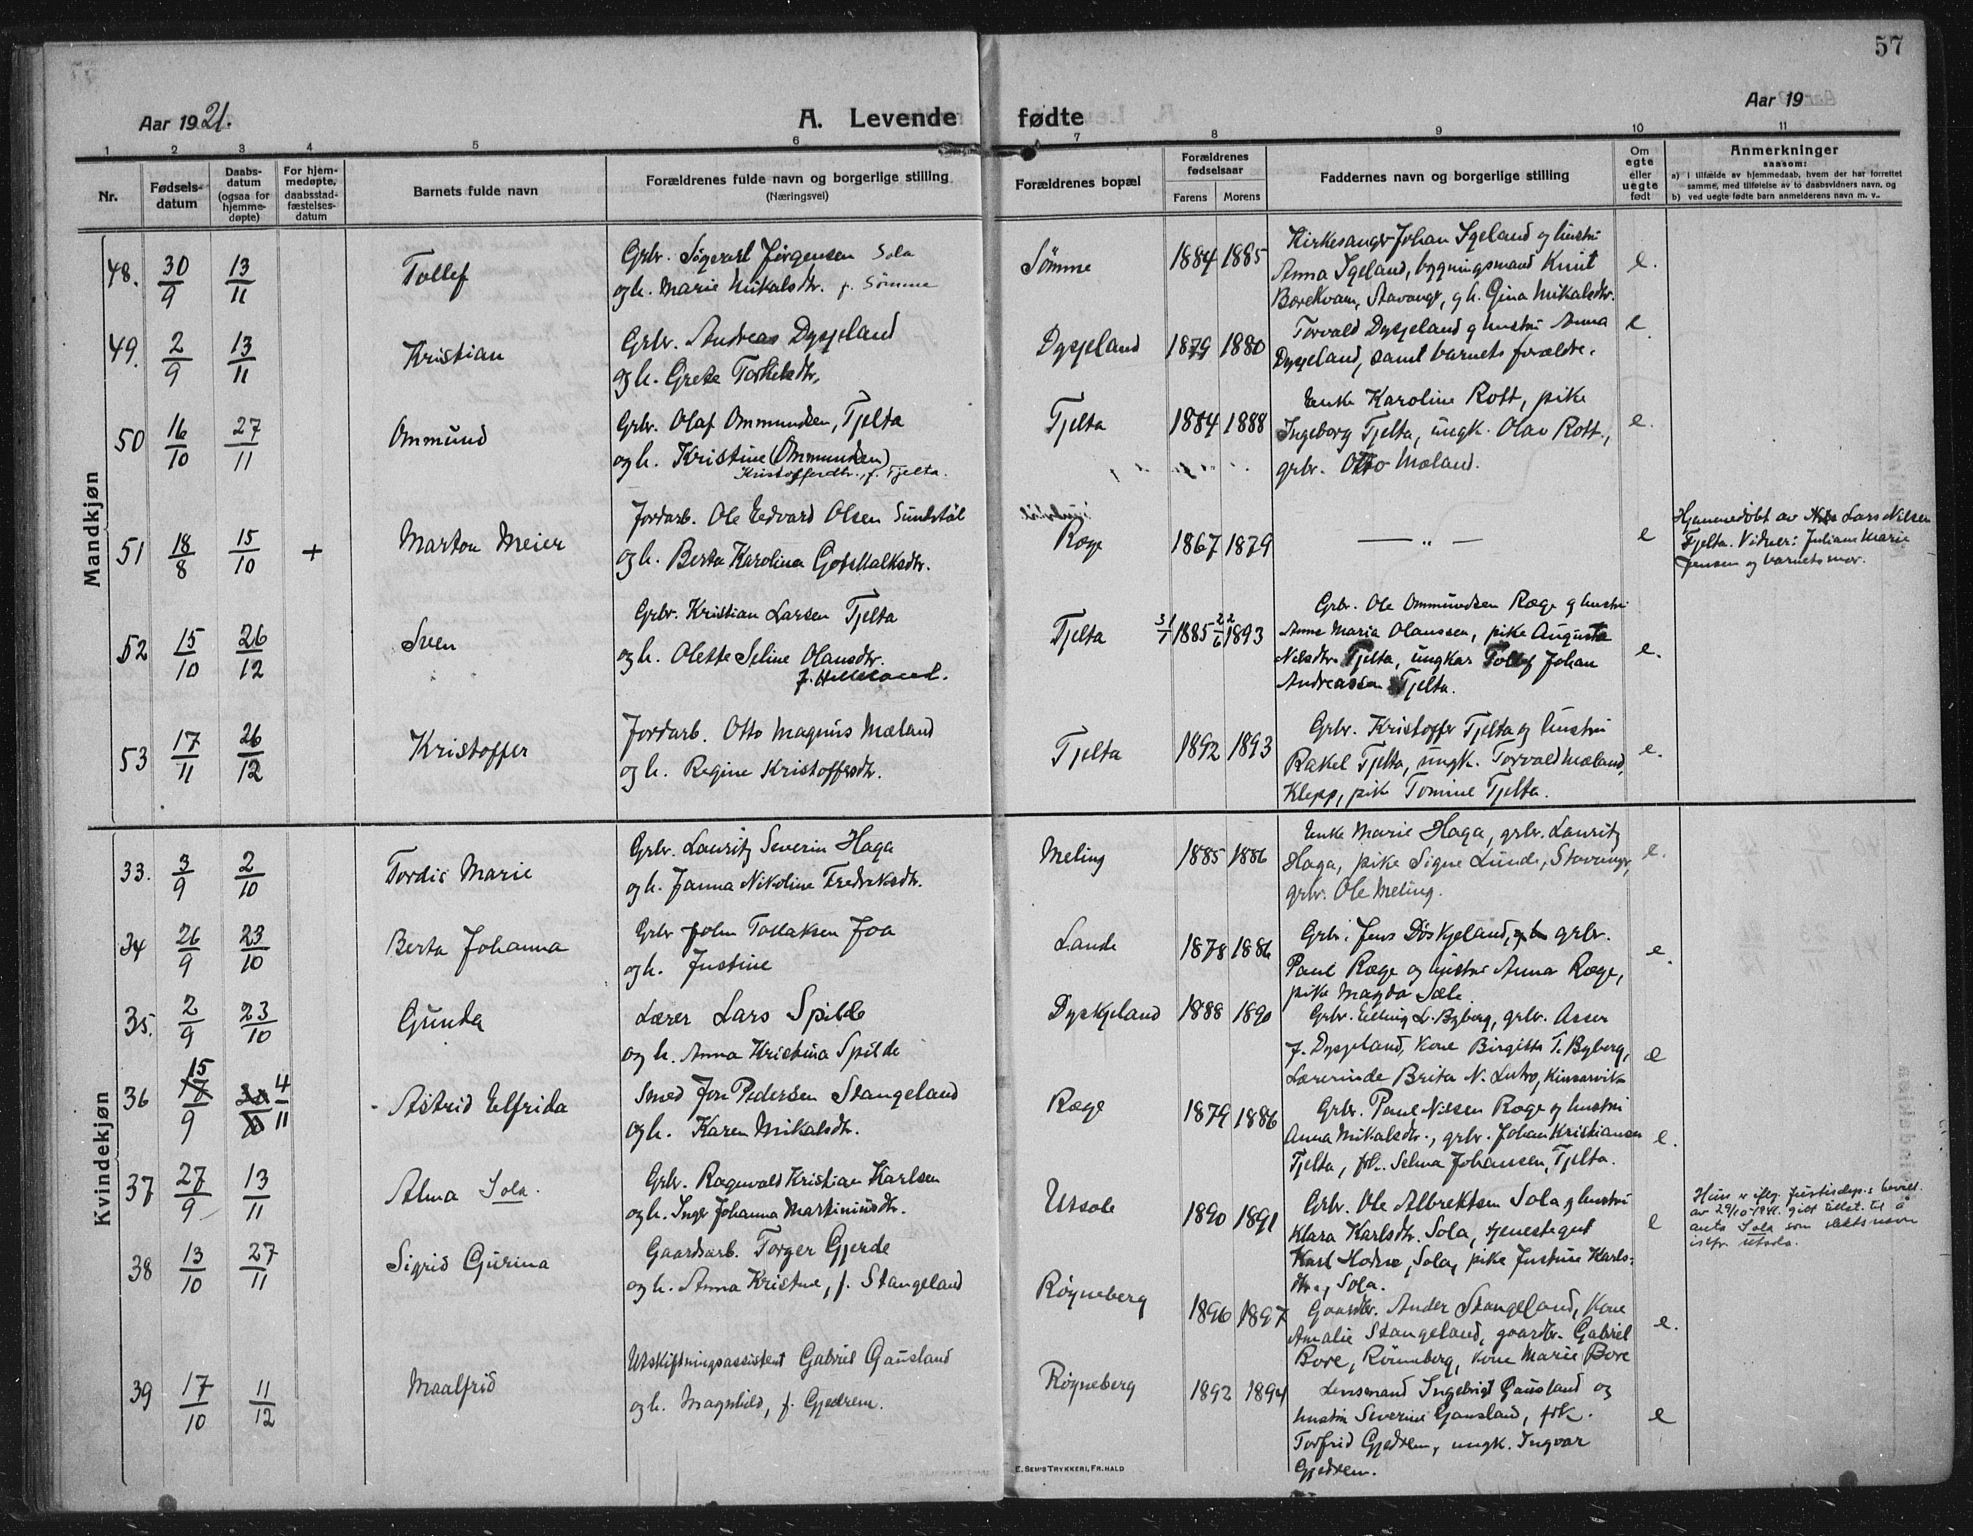 57
Aar 1921.
A. Levende fødte
Aar 19
1 2 3 4 5 6 7 8 9 10 11
Nr.
Fødsels-
datum
Daabs-
datum
(ogsaa for
hjemme-
døpte)
For hjem-
medøpte,
daabsstad-
fæstelses-
datum
Barnets fulde navn
Forældrenes fulde navn og borgerlige stilling
(Næringsvei)
Forældrenes bopæl
Forældrenes
fødselsaar
Farens Morens
Faddernes navn og borgerlige stilling
Om
egte
eller
uegte
født
Anmerkninger
saasom:
a) i tilfælde av hjemmedaab, hvem der har forrettet
samme, med tilføielse av to daabsvidners navn, og
b) ved uegte fødte barn anmelderens navn m. v..
Mandkjøn
48. 30/9 13/11 Tollef
Grbr. Sigvart Jørgensen Sola
og h. Marie Mikalsdtr. f. Sømme
Sømme 1884 1885
Kirkesanger Johan Igeland og hustru
Anna Igeland, bygningsmand Knut
Borekvam, Stavanger, g h. Gina Mikalsdtr.
e.
49. 2/9 13/11 Kristian
Grbr. Andreas Dysjeland
og h. Grete Torkelsdtr.
Dysjeland 1879 1880
Torvald Dysjeland g hustru Anna
Dysjeland, samt barnets forældre.
e
50 16/10 27/11 Ommund
Grbr. Olaf Ommundsen, Tjelta
og h. Kristine (Ommundsen)
Kristofferdtr., f. Tjelta.
Tjelta 1884 1888
Enke Karoline Rott, pike
Ingeborg Tjelta, ungk. Olav Rott,
grbr. Otto Mæland.
e.
51 18/8 15/10 + Marton Meier
Jordarb. Ole Edvard Olsen Sundstøl
og h. Berta Karolina Gotskalksdtr.
Ræge 1867 1879
— „ —
e
Hjemmedøbt av Lars Nilsen
Tjelta. Vidner: Juliane Marie
Jensen og barnets mor.
52 15/10 26/12 Sven
Grbr. Kristian Larsen Tjelta
og h. Olette Seline Olausdtr.
f. Hillesland.
Tjelta 31/1 1885 22/6 1893
Grbr. Ole Ommundsen Ræge g hustru
Anne Maria Olaussen, pike Augusta
Nilsdtr. Tjelta, ungkar Tollef Johan
Andreassen Tjelta.
e.
53 17/11 26/12 Kristoffer
Jordarb. Otto Magnus Mæland
og h. Regine Kristoffersdtr.
Tjelta 1892 1893
Grbr. Kristoffer Tjelta og hustru
Rakel Tjelta, ungk. Torvald Mæland,
Klepp, pike Tomine Tjelta.
e.
Kvindekjøn
33. 3/9 2/10 Tordis Marie
Grbr. Lauritz Severin Haga
og h. Janna Nikoline Fredriksdtr.
Meling 1885 1886
Enke Marie Haga, grbr. Lauritz
Haga, pike Signe Lunde, Stavanger,
grbr. Ole Meling.
e.
34 26/9 23/10 Berta Johanna
Grbr John Tollaksen Joa
og h. Justine
Lande 1878 1886
Grbr. Jens Dőskjeland, grbr.
Paul Ræge og hustru Anna Ræge,
pike Magda Sæle.
e.
35. 2/9 23/10 Gunda
Lærer Lars Spilde
og h. Anna Kristina Spilde
Dyskjeland 1888 1890
Grbr. Elling L. Byberg, grbr. Asser
J. Dysjeland, kone Birgitta T. Byberg,
Lærerinde Brita N. Lutro, Kinsarvik
e
36 15/9 4/11 Astrid Elfrida
Smed Jon Pedersen Stangeland
og h. Karen Mikalsdtr.
Ræge 1879 1886
Grbr. Paul Nilsen Ræge og hustru
Anna Mikalsdtr., grbr. Johan Kristiansen
Tjelta, frk. Selma Johansen, Tjelta.
e.
37 27/9 13/11 Alma Sola.
Grbr. Ragnvald Kristian Karlsen
og h. Inger Johanna Martiniusdtr.
Utsole 1890 1891
Grbr. Ole Albrektsen Sola g hustru
Klara Karlsdtr. Sola, tjenestegut
Karl Hodne, Sola, pike Justine Karls-
dtr., Sola.
e
Hun er iflg. Justisdep.s bevill.
av 29/10 1941 gitt tillat. til å
anta Sola som slektsnavn
istf. Utsola.
38 13/10 27/11 Sigrid Gurina
Gaardarb. Torger Gjerde
og h. Anna Kristine, f. Stangeland
Røyneberg 1896 1897
Gaardbr. Ander Stangeland, kone
Amalie Stangeland, gaardbr. Gabriel
Bore, Rønneberg, kone Marie Bore
e.
39 17/10 11/12 Maalfrid
Utskiftningsassistent Gabriel Gausland
og h. Magnhild, f. Gjedrem.
Røyneberg 1892 1894
Lensmand Ingebrigt Gausland og
hustru Severine Gausland, frk.
Torfrid Gjedrem, ungk. Ingvar
Gjedrem.
e
E. SEM'S TRYKKERI, FR.HALD